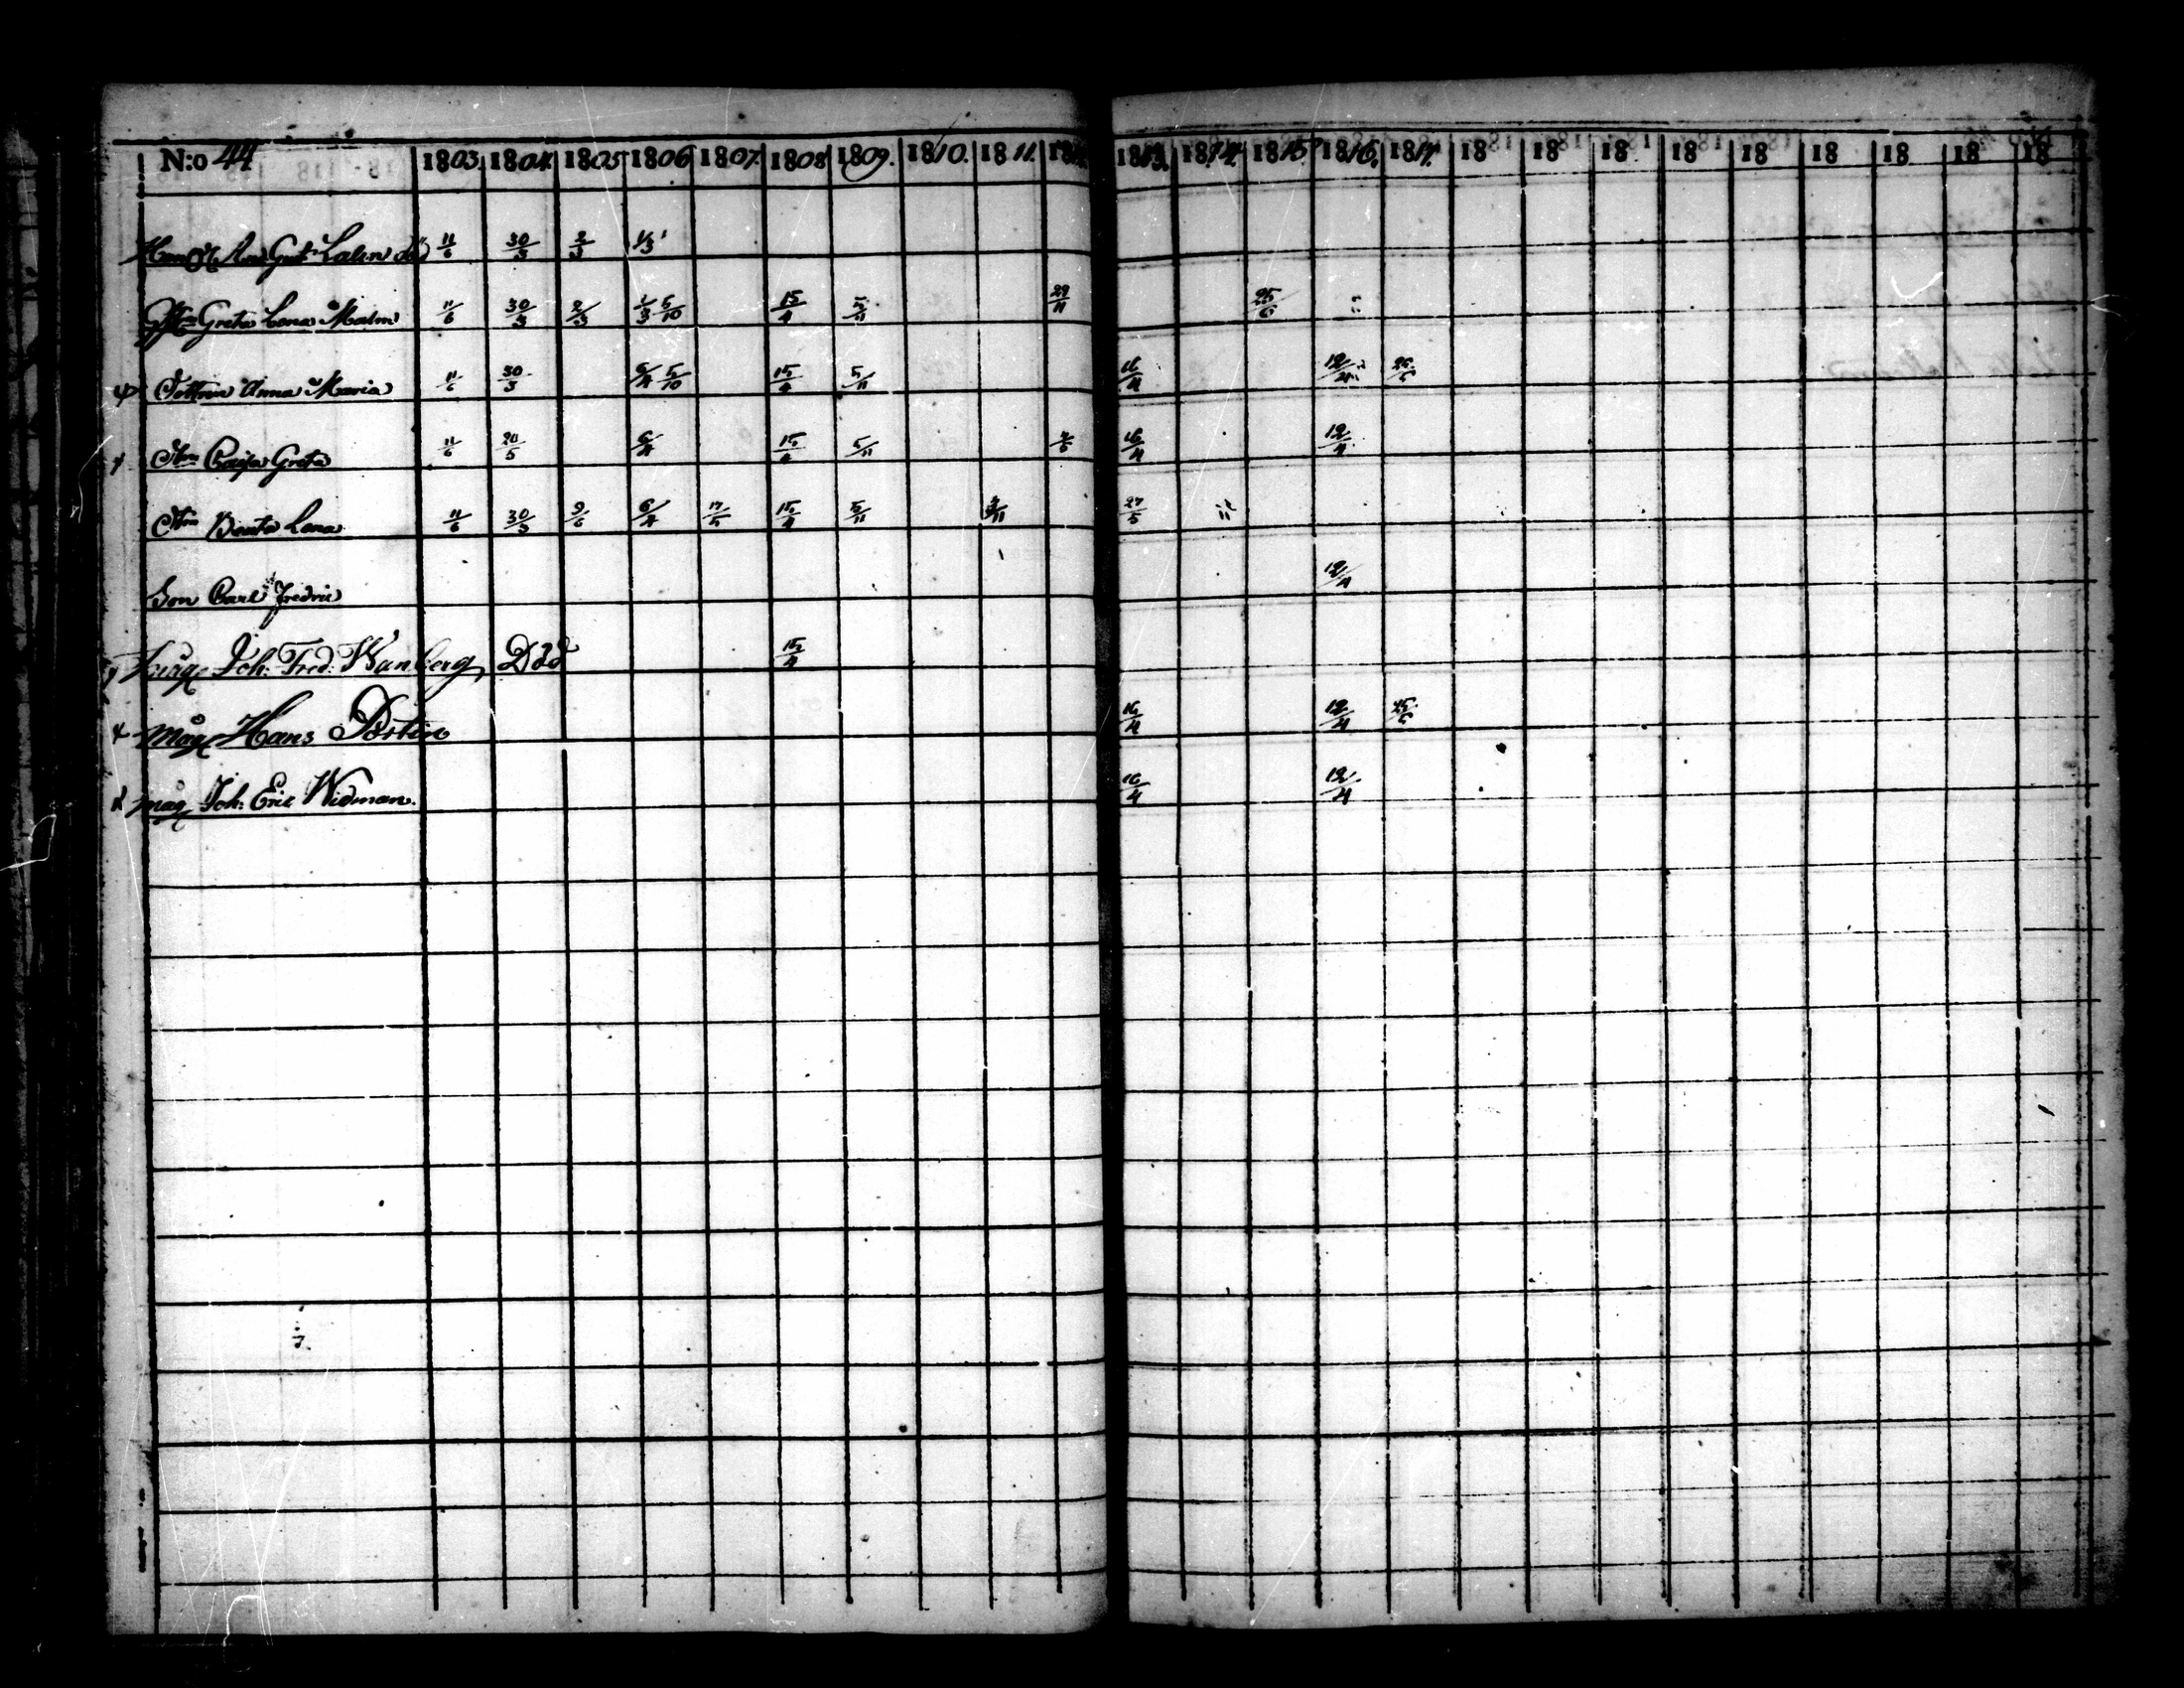 N:o 44 1803. 1804. 1805 1806 1807. 1808 1809. 1810. 1811. 18 1813. 1814. 1815. 1816. 1817. 18 18 18 18 18 18 18 18 18
And. Gust. Lalin död 11/6 30/3 2/3 1/3
Greta Lena Malm 11/6 30/3 2/3 1/3 5/10 15/4 5/11 29/11 25/6
Dottren Anna Maria 11/6 30/3 6/4 5/10 15/4 5/11 16/4 12/4 25/5
Caisa Greta 11/6 6/4 15/4 5/11 16/4 12/4
Beata Lena 11/6 30/3 9/6 6/4 17/5 15/4 5/11 27/5
Son Carl Fredric 12/4
Joh: Fred: Wanberg, Död 15/4
Måg Hans Portin 16/4 12/4 25/5
Måg Joh: Eric Widman. 16/4 12/4